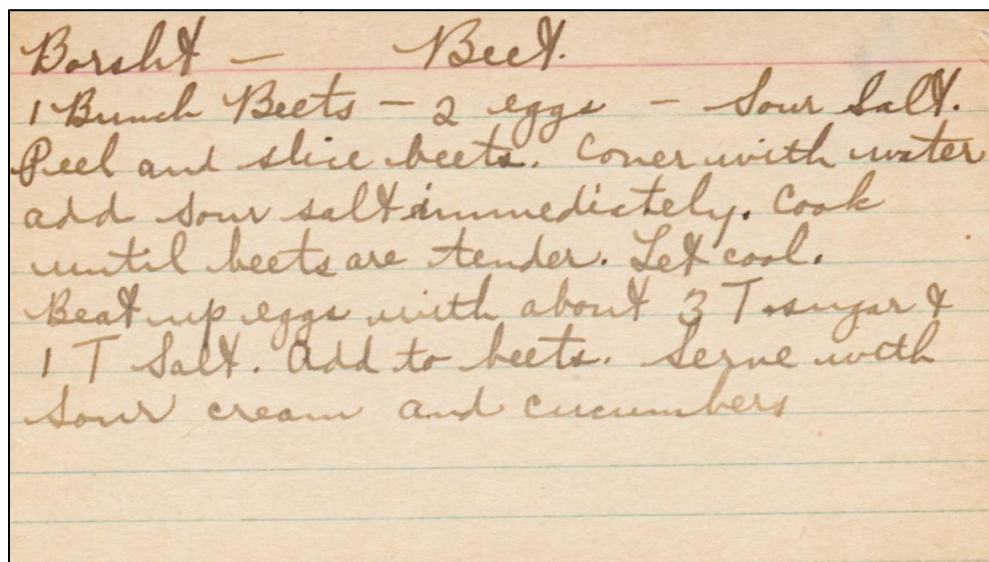 Borsht — Beet.
1 Bunch Beets — 2 eggs — Sour Salt.
Peel and slice beets. Cover with water
add sour salt immediately. Cook
until beets are tender. Let cool.
Beat up eggs with about 3 T. sugar &
1 T Salt. Add to beets. Serve with
sour cream and cucumbers